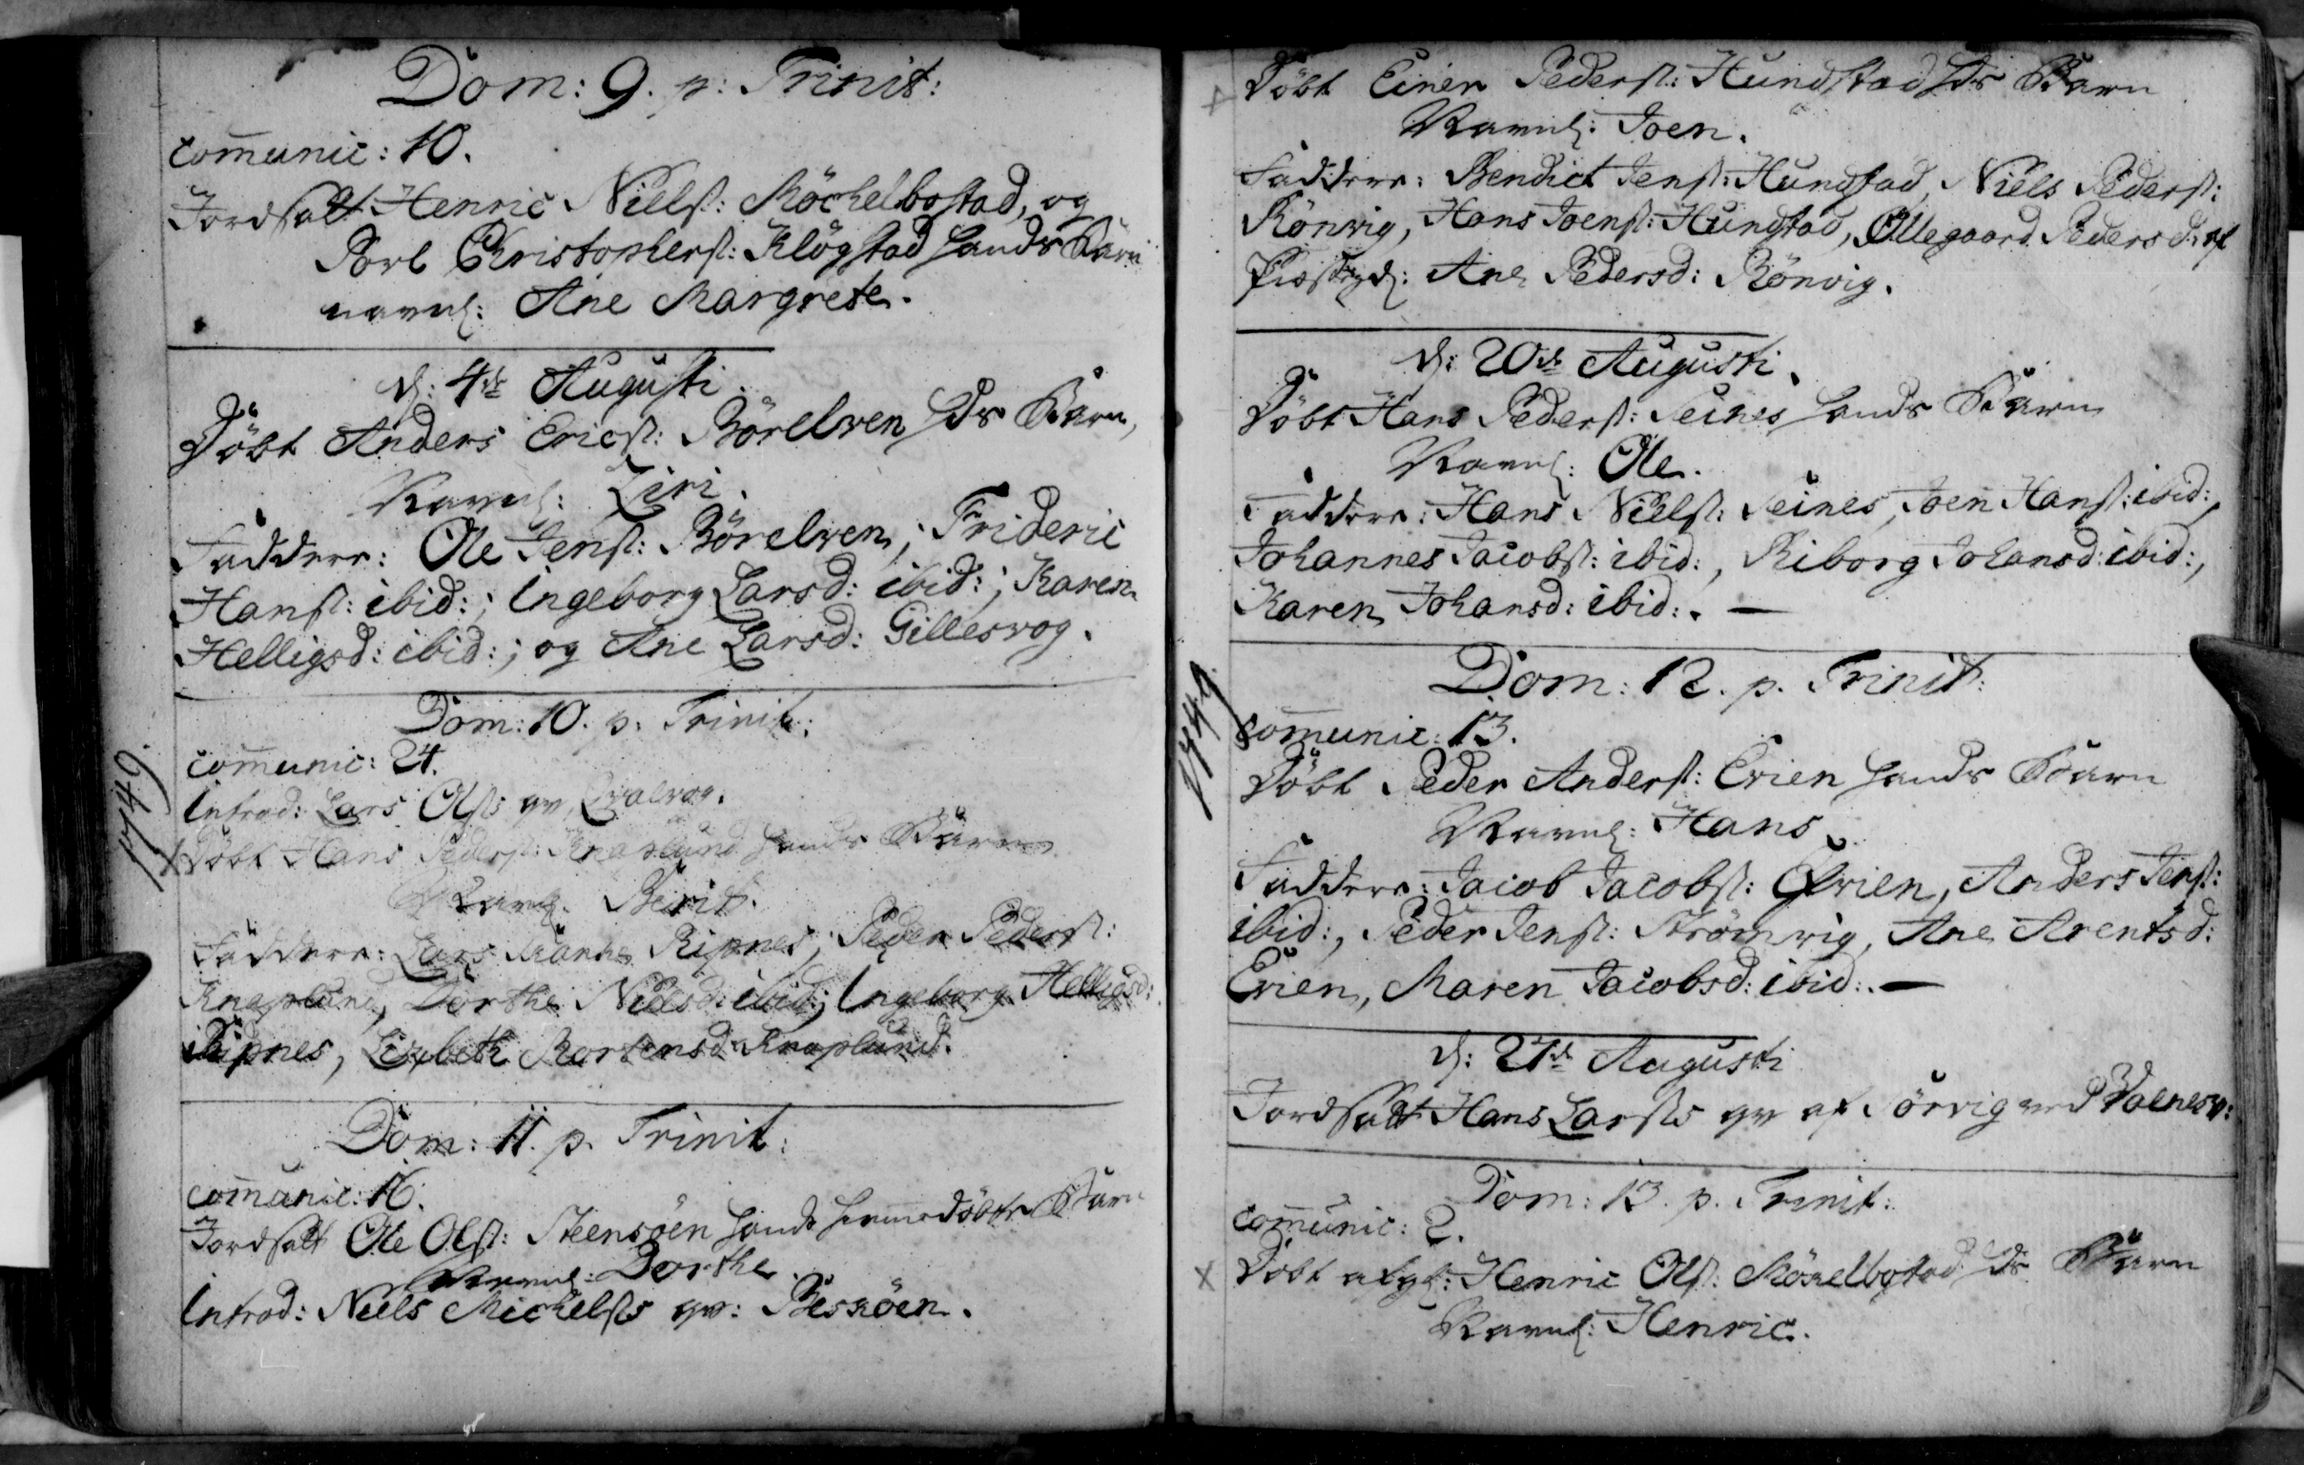 Dom: 9. p: Trinit:
com̄unic: 10.
Jordfæst Henric Nielss: Möchelbostad, og
Povl Christophers: Klögstad hands Barn
navnl: Ane Margrete.
d: 4de Augusti.
Döbt Anders Erics: Börelven hs Barn,
Navnl: Ziri.
Faddere: Ole Jens: Börelven, Frideric
Hans: ibid:; Ingeborg Larsd: ibid:; Karen
Helligsd: ibid:; og Ane Larsd: Gillesvog.
Dom: 10. p: Trinit:
1749.
com̄unic: 24.
Introd: Lars Ols qv, Qvalvog.
Döbt Hans Peders: Knaplund hands Barn
Navnl: Berit.
Faddere: Lars Ripnes, Peder Peders:
Knaplund, Dorthe Nielsd: ibid:, Ingeborg Helligsd:
Ripnes, Lisbeth Mortensd: Knaplund.
Dom: 11. p. Trinit:
com̄unic: 16.
Jordfæst Ole Ols: Steensöen hands hiemedöbte Barn
Navnl: Dorthe.
Introd: Niels Michels qv: Besköen.
Döbt Einer Peders: Hundstad hs Barn
Navnl: Joen.
Faddere: Bendict Jens: Hundstad, Niels Peders:
Rönvig, Hans Joens: Hundstad, Ollegaard Pedersd: af
Ane Pedersd: Rönvig.
d: 20de Augusti.
Döbt Hans Peders: Seines hands Barn
Navnl: Ole.
Faddere: Hans Niels: Seines, Joen Hans: ibid:,
Johannes Jacobs: ibid:, Riborg Johansd: ibid:,
Karen Johansd: ibid:. —
Dom: 12. p. Trinit:
1749.
com̄unic: 13.
Döbt Peder Anders: Evien hands Barn
Navnl: Hans.
Faddere: Jacob Jacobs: Evien, Anders Jens:
ibid:, Peder Jens: Strömvig, Ane Arentsd:
Evien, Maren Jacobsd: ibid:. —
d: 27de Augusti
Jordfæst Hans Lars qv af Sörvig ved
Dom: 13. p. Trinit:
com̄unic: 2.
x Döbt Henric Ols: Möchelbostad hs Barn
Navnl: Henric.